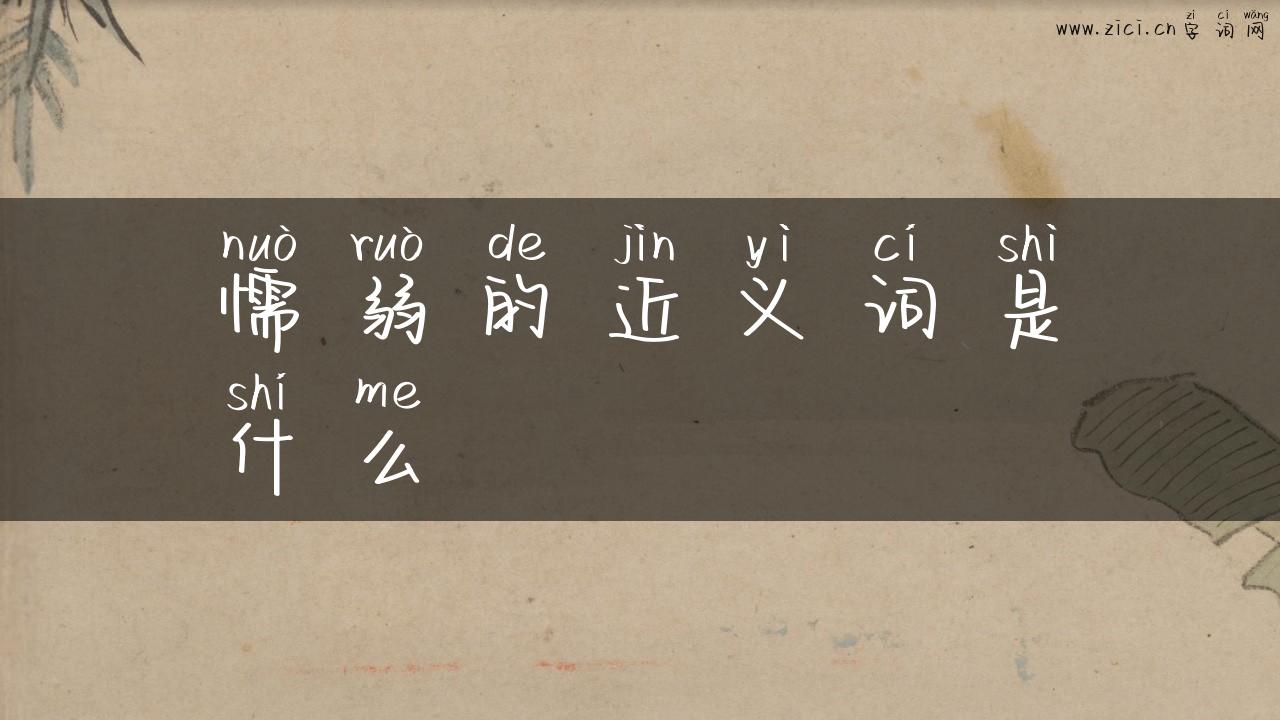 zì cí wǎng
www.zici.cn 字词网
nuò ruò de jìn yì cí shì
懦弱的近义词是
shí me
什么